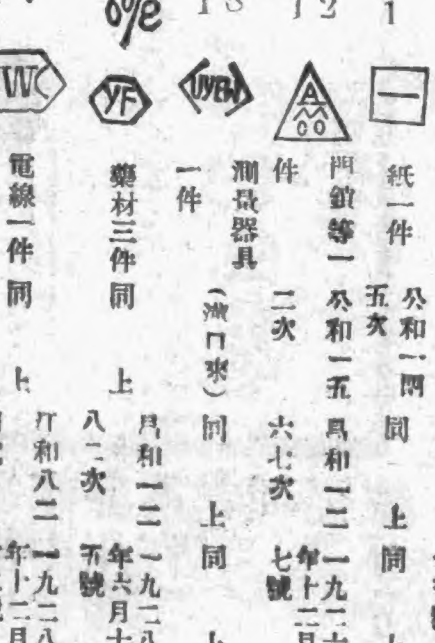 1
一
紙一件
公和一四
五次
同 上
同
12
A
M
OO
門鎖等一
件
公和一五
二次
昌和一二
六七次
一九二六
年十二月
七號
13
UYEW
測量器具
一件
(漢口來)
同 上
同 上
o/e
YF
藥材三件
同 上
昌和一二
八二次
一九二八
年六月十
五號
WC
電線一件
同 上
和八二
一九二八
年十二月